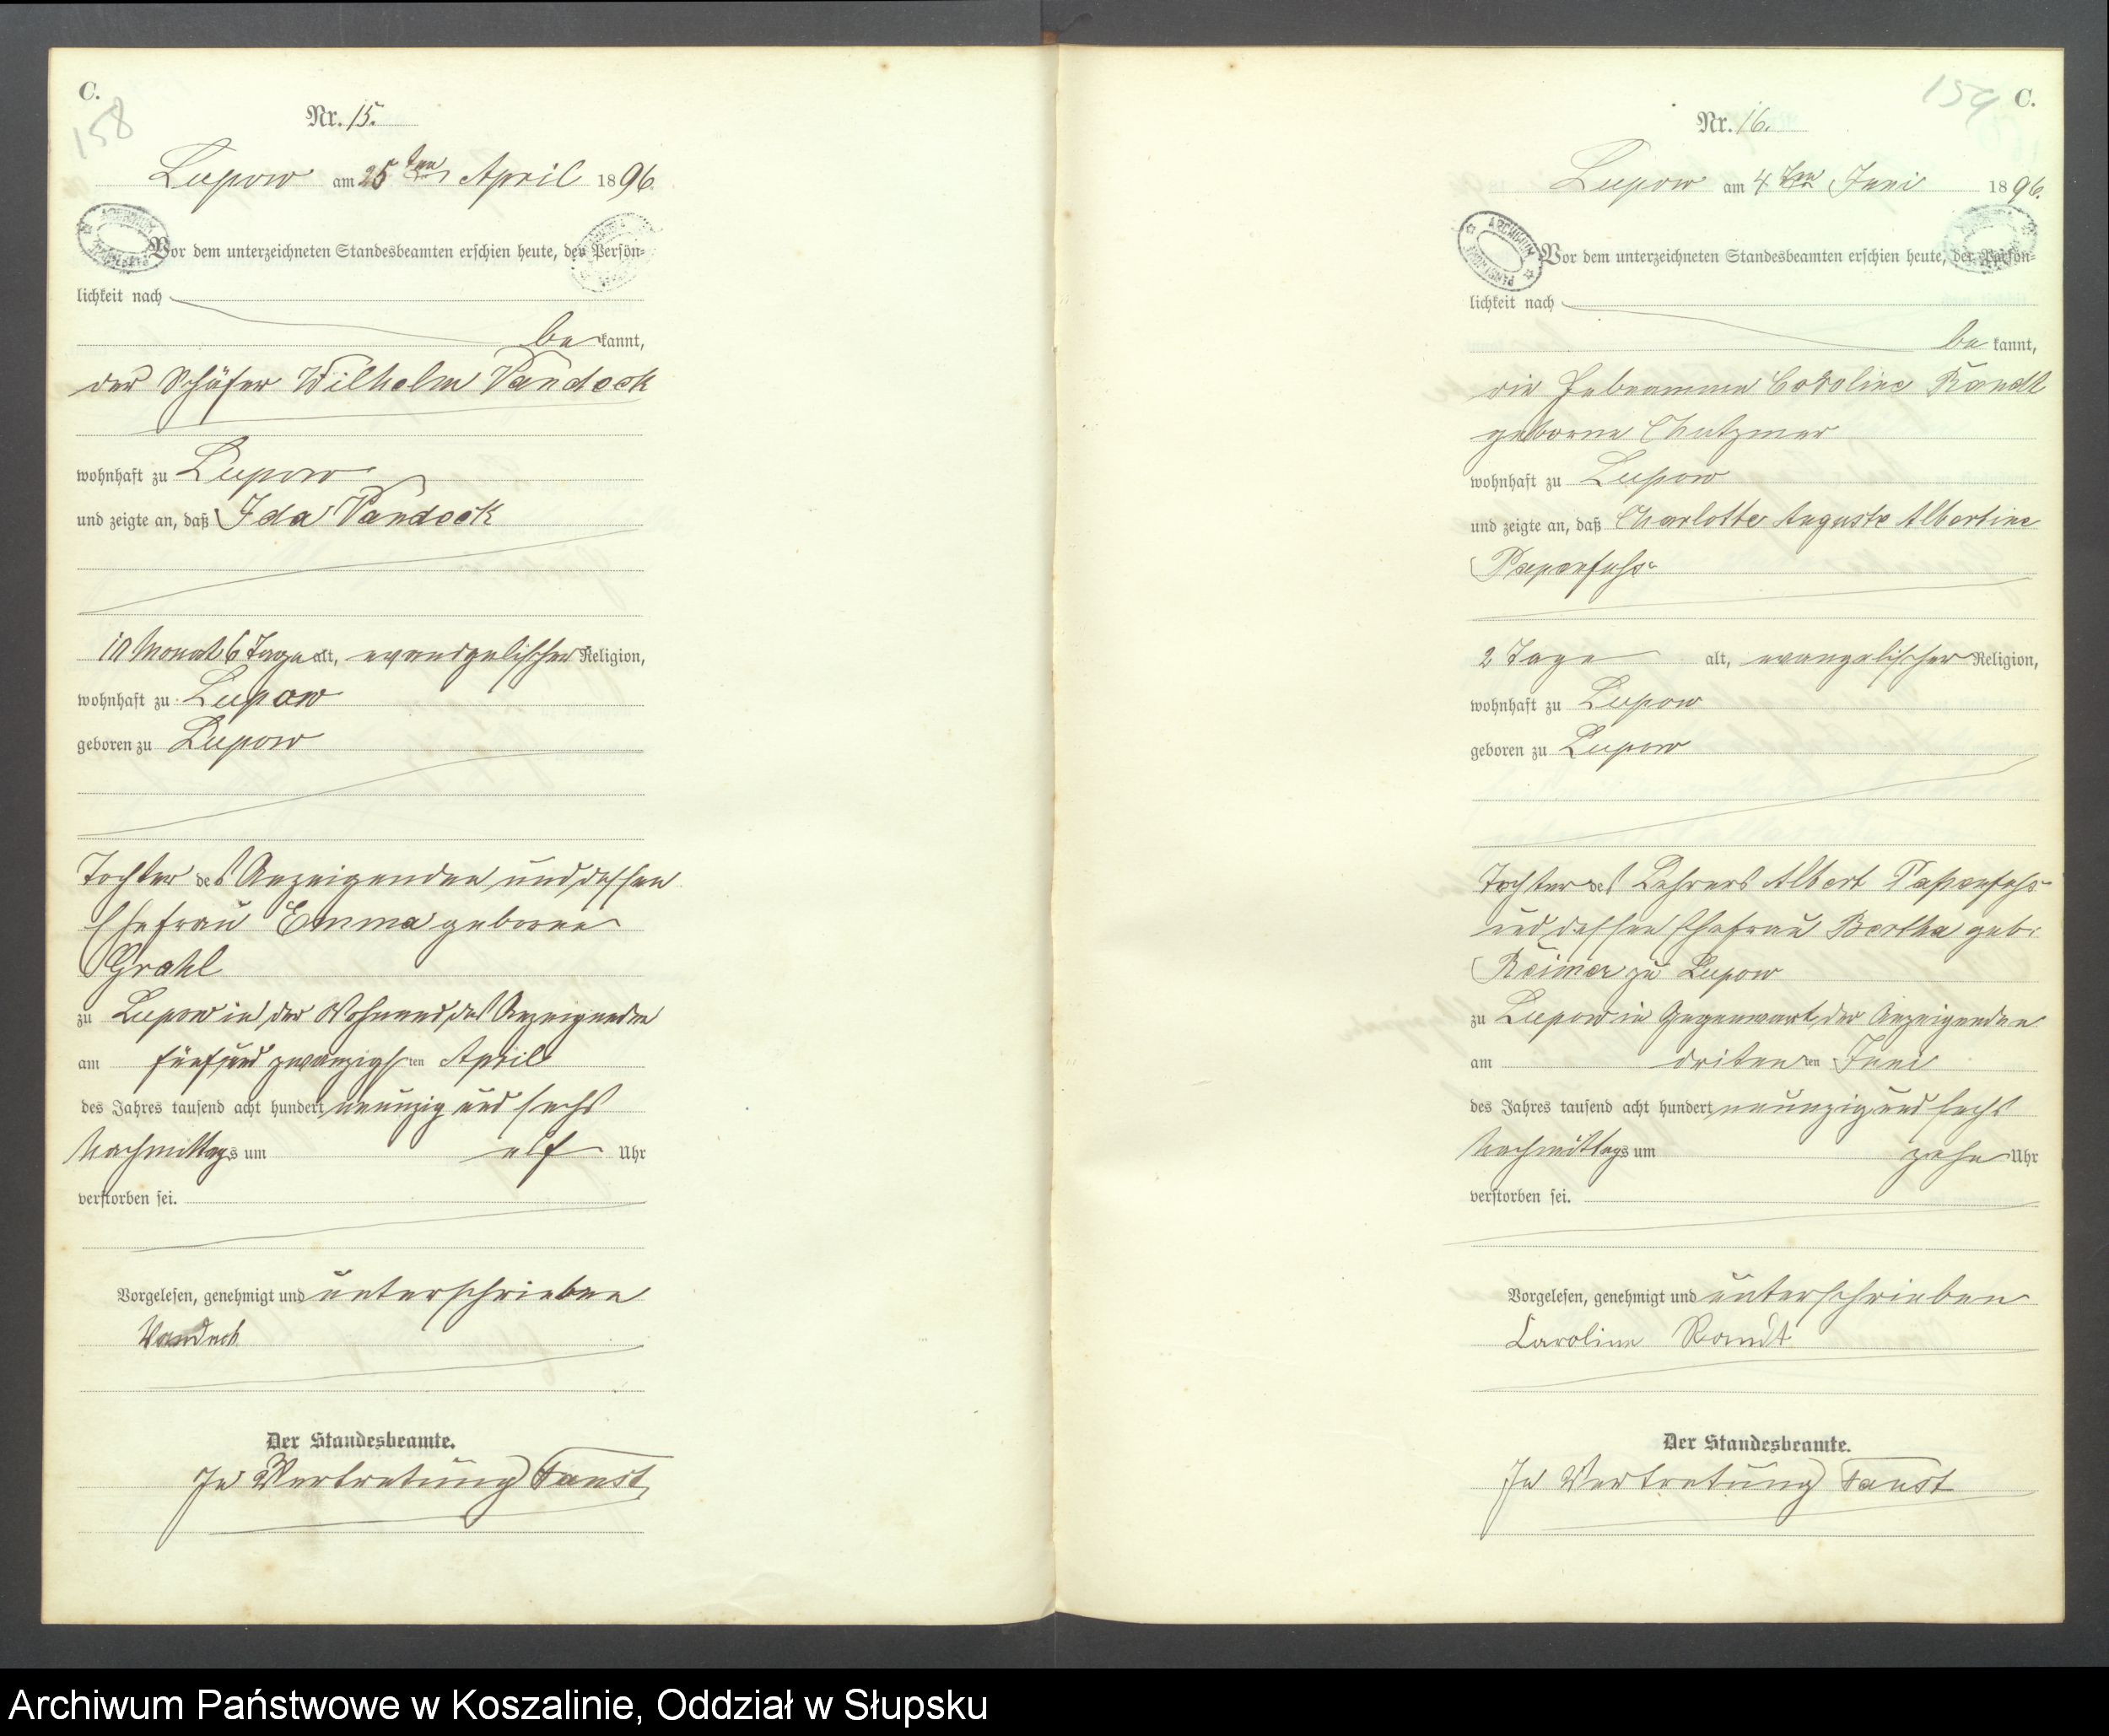 C.
158
Nr. 15.
Lupow am 25 ten April 1896.
Vor dem unterzeichneten Standesbeamten erschien heute, der Persön-
lichkeit nach
be kannt,
der Schäfer Wilhelm Vandeck
wohnhaft zu Lupow
und zeigte an, daß Ida Vandock
10 Monat 6 Tage alt, evangelischer Religion,
wohnhaft zu Lupow
geboren zu Lupow
Tochter des Anzeigenden und dessen
Ehefrau Emma geborne
Grahl
zu Lupow in der Wohnung des Anzeigenden
am fünfund zwanzigsten April
des Jahres tausend acht hundert neunzig und sechs
Nachmittags um elf Uhr
verstorben sei.
Vorgelesen, genehmigt und unterschrieben
Vandeck
Der Standesbeamte.
In Vertretung Faust
159
C.
Nr. 16.
Lupow am 4 ten Juni 1896.
ARCHIWUM
Vor dem unterzeichneten Standesbeamten erschien heute, der Persön-
lichkeit nach
be kannt,
die Hebeamme Caroline Randt
geborne
wohnhaft zu Lupow
und zeigte an, daß Charlotte Auguste Albertine
Papenfuhs
2 Tage alt, evangelischer Religion,
wohnhaft zu Lupow
geboren zu Lupow
Tochter des Lehrers Albert Papenfuhs
und dessen Ehefrau Bertha geb.
Reimer zu Lupow
zu Lupow in Gegenwart der Anzeigenden
am dritten ten Juni
des Jahres tausend acht hundert neunzig und sechs
Nachmittags um zehn Uhr
verstorben sei.
Vorgelesen, genehmigt und unterschrieben
Caroline Randt
Der Standesbeamte.
In Vertretung Faust
Archiwum Państwowe w Koszalinie, Oddział w Słupsku